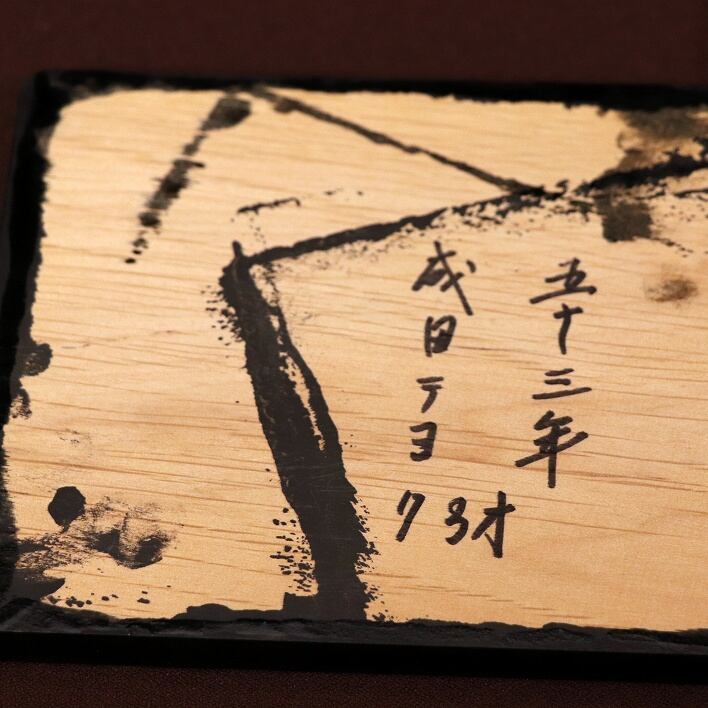 五十三年
成田テヨ
ク3才